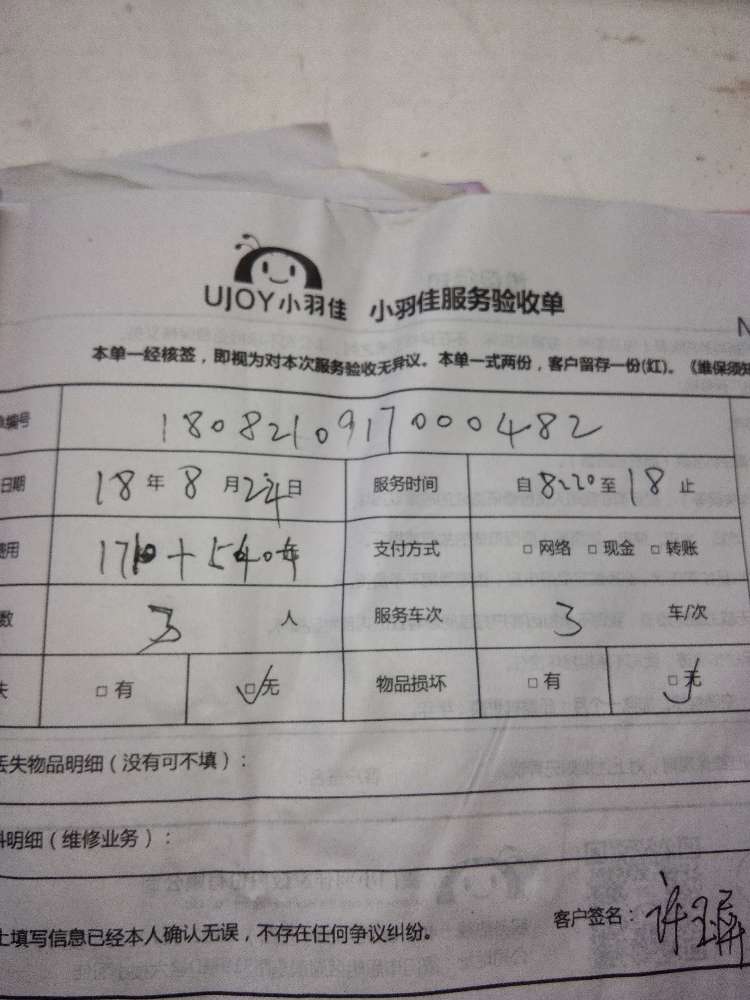 UJOY小羽佳 小羽佳服务验收单
本单一经核签，即视为对本次服务验收无异议。本单一式两份，客户留存一份(红)。《维保须知
单编号 1808210917000482
日期 18年8月24日 服务时间 自8:20至18止
费用 支付方式 □网络 □现金 □转账
数 3人 服务车次 3 车/次
失 □有 □无 物品损坏 □有 □无
丢失物品明细（没有可不填）：
料明细（维修业务）：
上填写信息已经本人确认无误，不存在任何争议纠纷。 客户签名：许